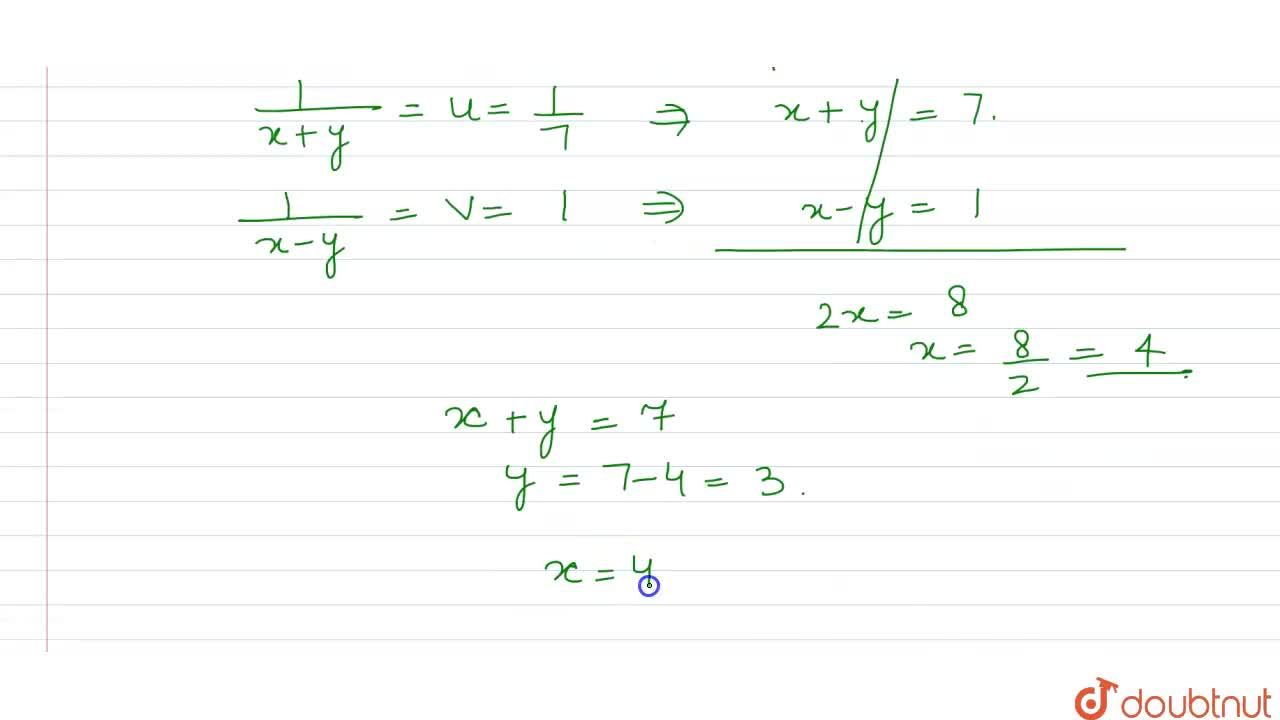 1/(x+y) = u = 1/7 ⇒ x + y = 7.
1/(x-y) = v = 1 ⇒ x - y = 1
2x = 8
x = 8/2 = 4
x + y = 7
y = 7 - 4 = 3.
x = 4
doubtnut